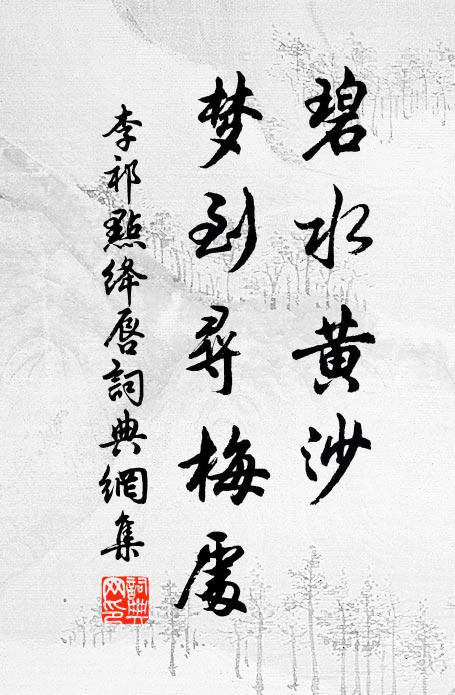 碧水黄沙
梦到尋梅處
李祁點绛唇詞典網集
詞典網印